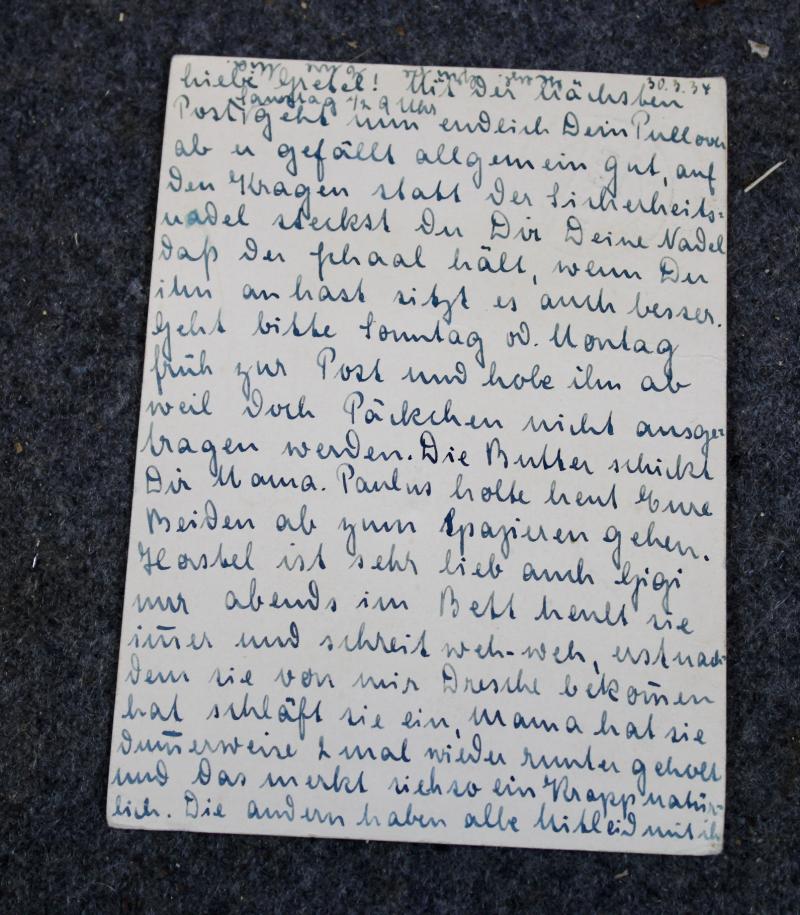 30.3.34
Liebe Gretel! Mit der nächsten
Samstag ½ 9 Uhr
Post geht nun endlich Dein Pullover
ab er gefällt allgemein gut, auf
den Kragen statt der Sicherheits-
nadel steckst Du Dir Deine Nadel
daß der Schaal hält, wenn Du
ihn anhast sitzt es auch besser.
Geht bitte Sonntag od. Montag
früh zur Post und hole ihn ab
weil doch Päckchen nicht ausge-
tragen werden. Die Butter schickt
Dir Mama. Paulus holte heut Eure
Beiden ab zum Spazieren gehen.
Horstel ist sehr lieb auch Gigi
nur abends im Bett heult sie
im̄er und schreit weh-weh, erst nach-
dem sie von mir Dresche bekom̄en
hat schläft sie ein, Mama hat sie
dum̄erweise 2 mal wieder runter geholt
und das merkt sich so ein Krapp natür-
lich. Die andern haben alle Mitleid mit ih